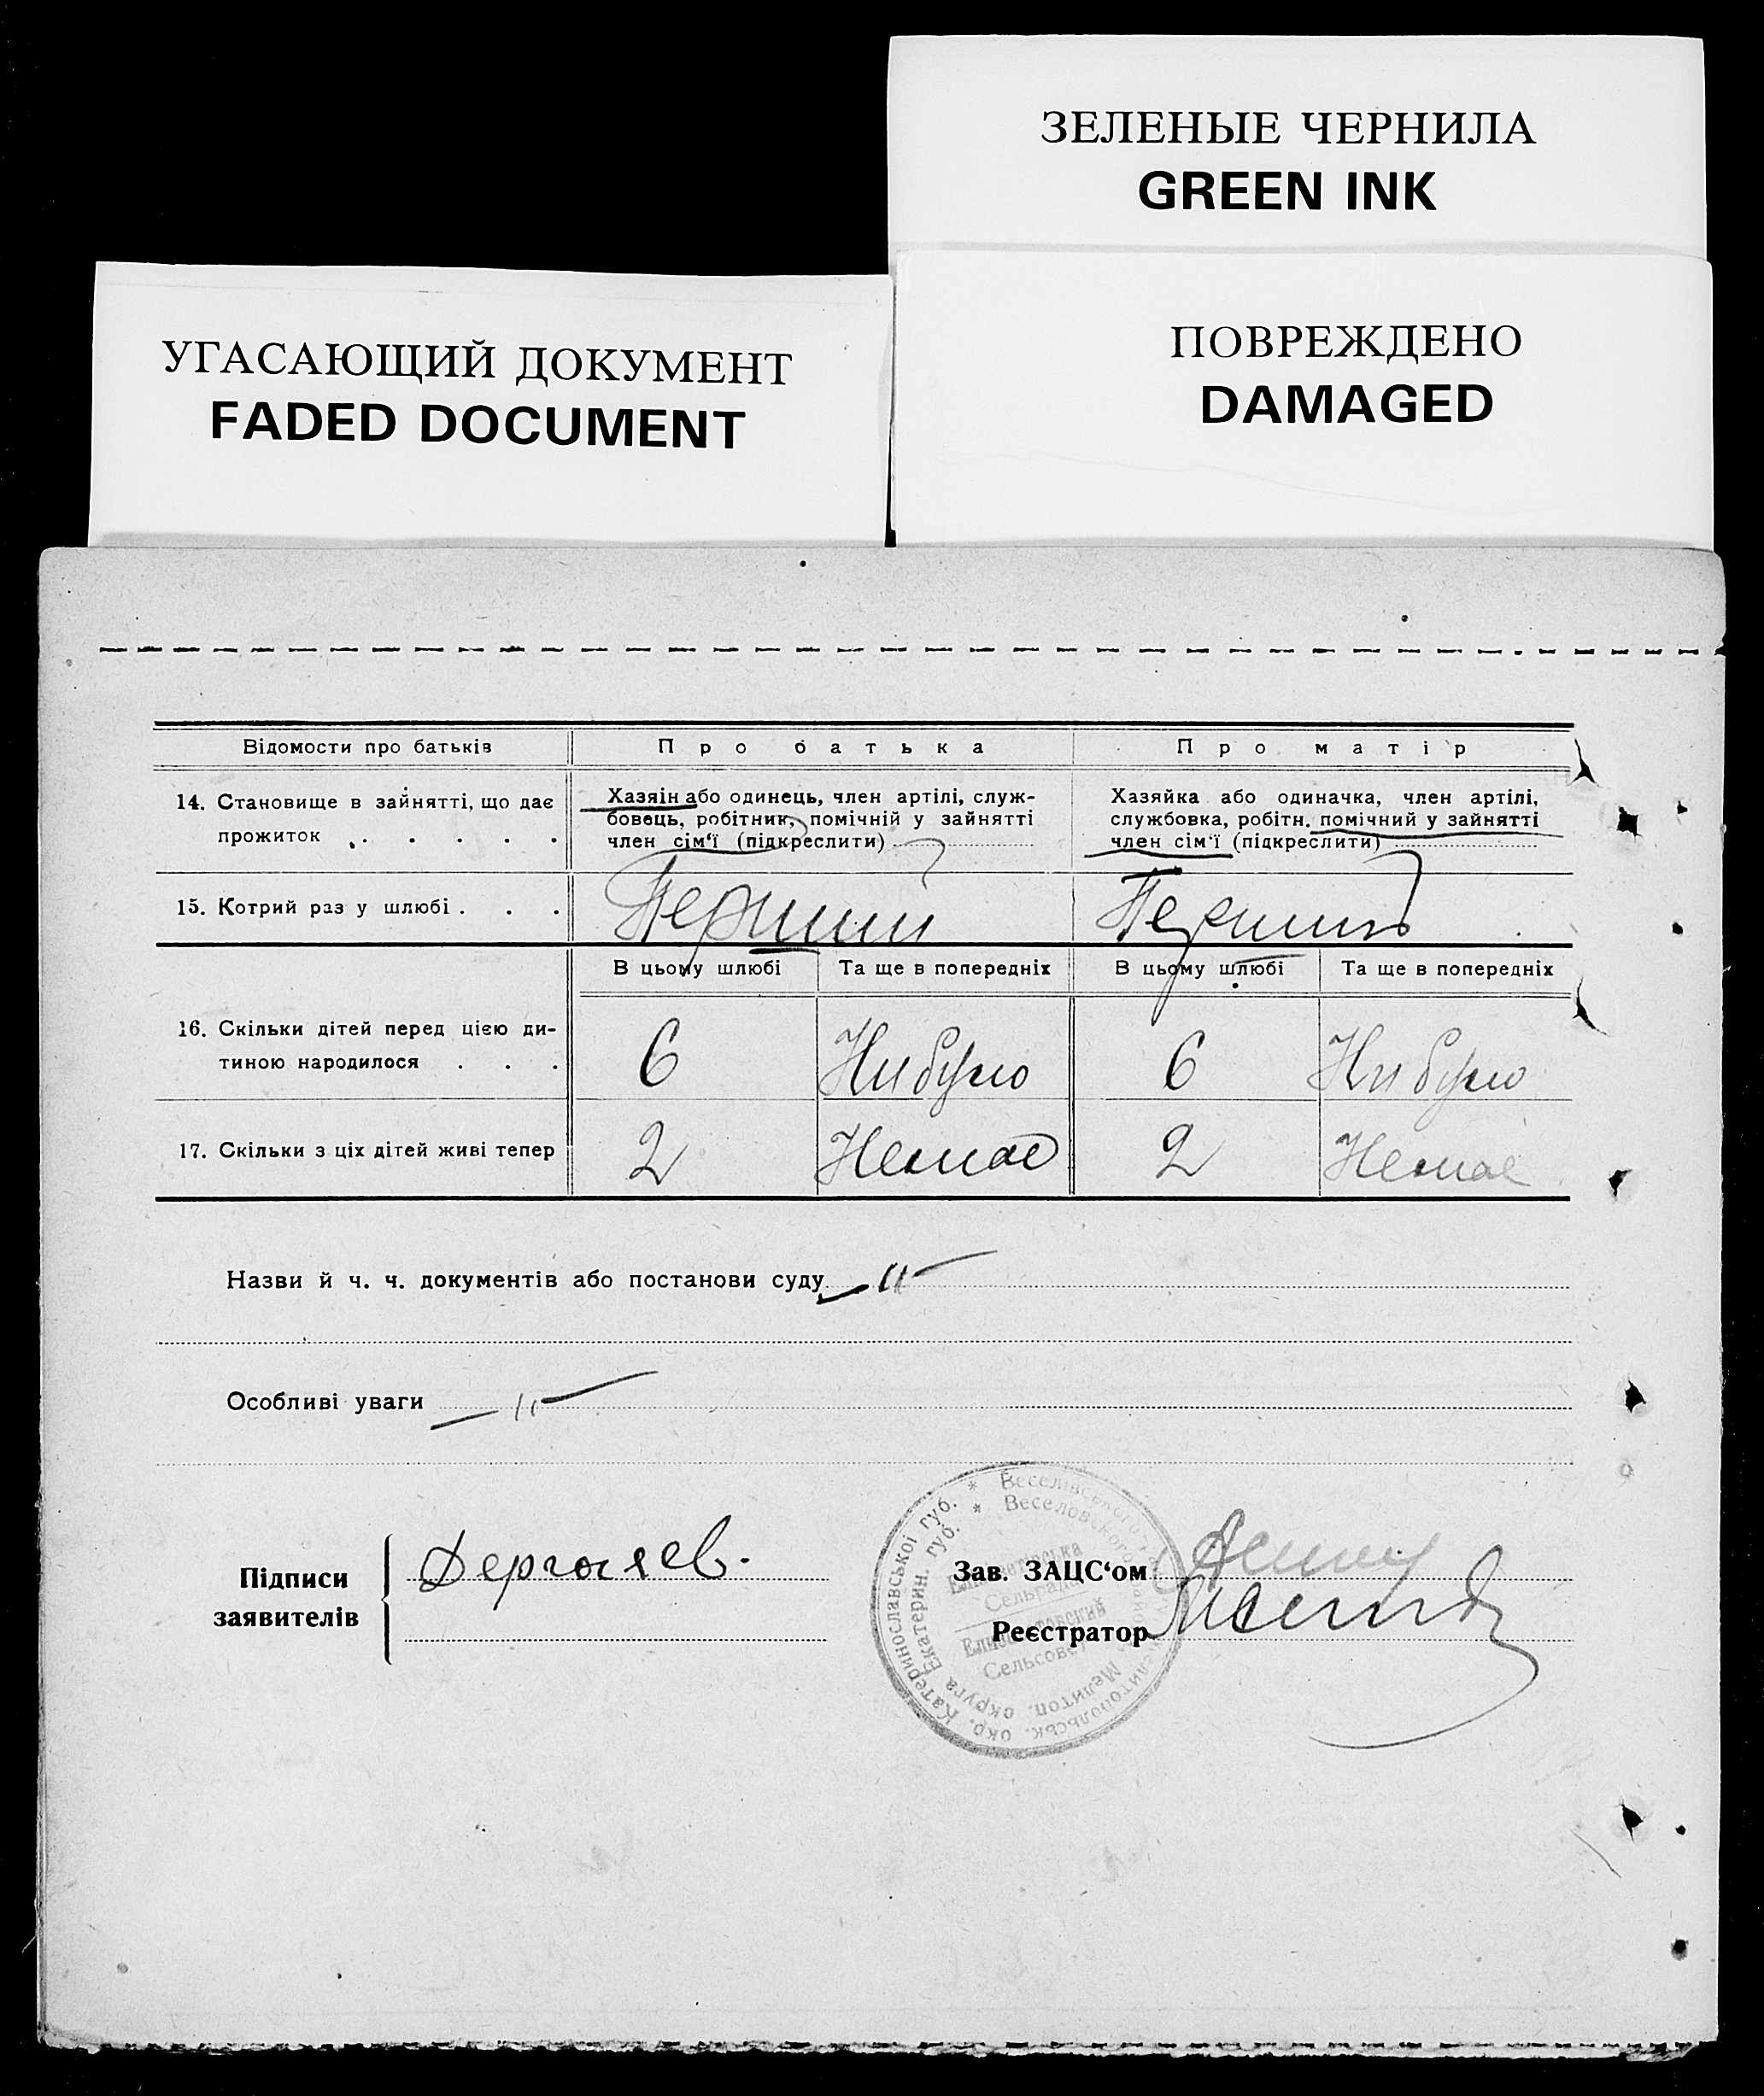 ЗЕЛЕНЫЕ ЧЕРНИЛА
GREEN INK
УГАСАЮЩИЙ ДОКУМЕНТ
FADED DOCUMENT
ПОВРЕЖДЕНО
DAMAGED
Відомости про батьків
Про батька
Про матір
14. Становище в зайнятті, що дає
прожиток . . . . .
Хазяін або одинець, член артілі, служ-
бовець, робітник, помічній у зайнятті
член сім‘ї (підкреслити)
Хазяйка або одиначка, член артілі,
службовка, робітн. помічний у зайнятті
член сім‘ї (підкреслити)
15. Котрий раз у шлюбі . . .
Перший
Перший
В цьому шлюбі
Та ще в попередніх
В цьому шлюбі
Та ще в попередніх
16. Скільки дітей перед цією ди-
тиною народилося . . .
6
Нибуло
6
Нибуло
17. Скільки з ціх дітей живі тепер
2
Немає
2
Немає
Назви й ч. ч. документів або постанови суду — " —
Особливі уваги — " —
Підписи
заявителів
Зав. ЗАЦС‘ом
Реєстратор
Катеринославської губ. * Веселівського
окр.
Екатерин. губ. * Веселовского
Мелитоп. округа
Сельрада
Сельсовет